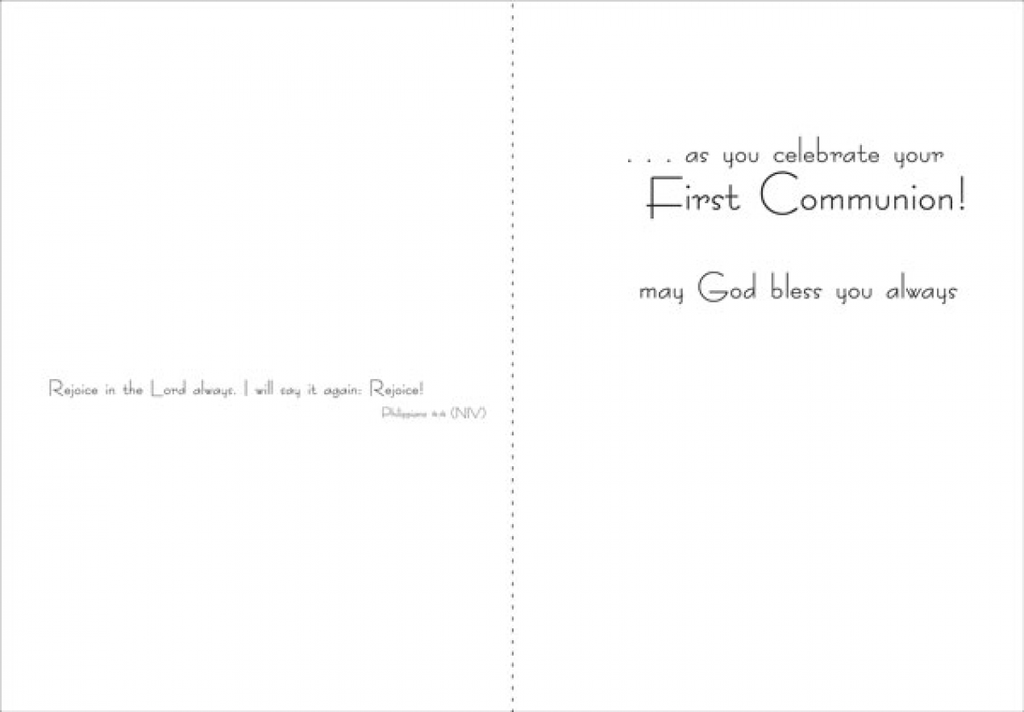 Rejoice in the Lord always. I will say it again: Rejoice!
Philippians 4:4 (NIV)
. . . as you celebrate your
First Communion!
may God bless you always